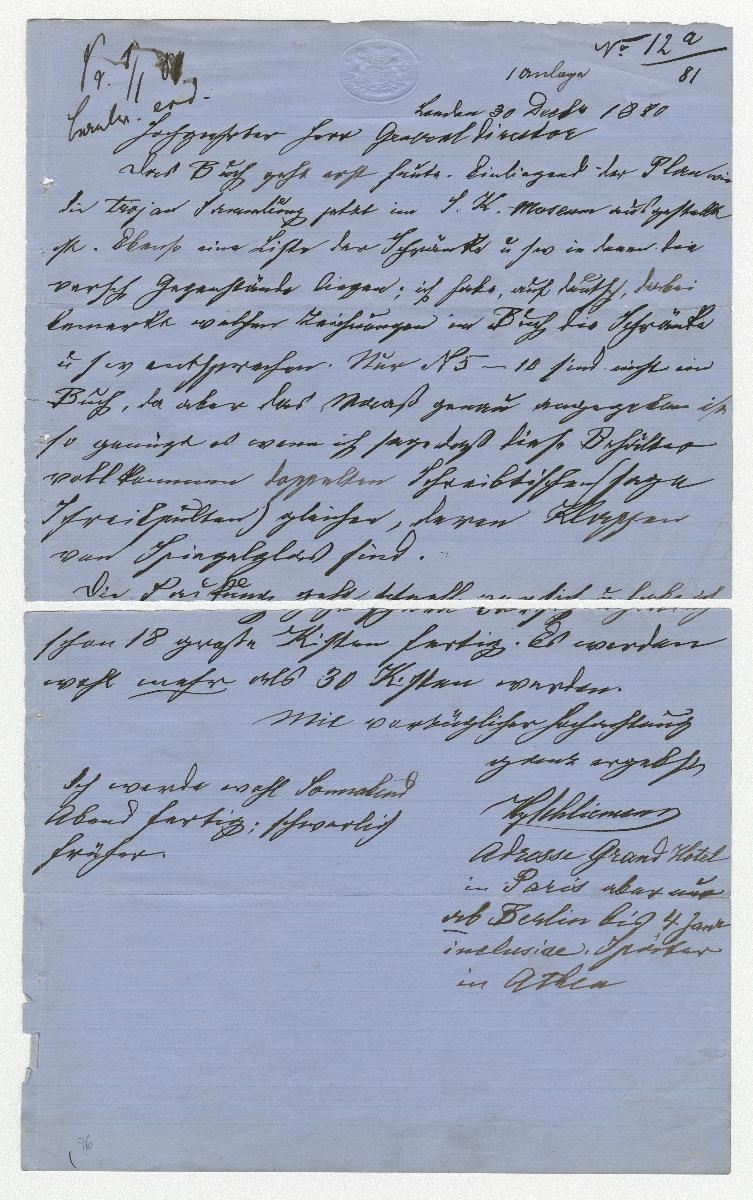 No 12a
81
1 Anlage
London 30 Decbr 1880
Hochgeehrter Herr Generaldirector
Das Buch geht erst heute. Einliegend der Plan wie
die trojan Sammlung jetzt im S. K. Museum aufgestellt
ist. Ebenso eine Liste der Schränke u s w in denen die
versch Gegenstände liegen; ich habe, auf deutsch, dabei
bemerkt welchen Zeichnungen im Buch die Schränke
u s w entsprechen. Nur N 5 – 10 sind nicht im
Buch, da aber das Maaß genau angegeben ist
so genügt es wenn ich sage daß diese Behälter
vollkommen doppelten Schreibtischen (sage
Schreibpulten) gleichen, deren Klappen
von Spiegelglas sind.
Die Packung geht schnell vor sich u habe ich
schon 18 große Kisten fertig. Es werden
wohl mehr als 30 Kisten werden.
Mit vorzüglicher Hochachtung
ganz ergebenst
HySchliemann
Ich werde wohl Sonnabend
Abend fertig; schwerlich
früher.
Adresse Grand Hôtel
in Paris aber nur
ab Berlin bis 4 Janr
inclusive. Später
in Athen
96